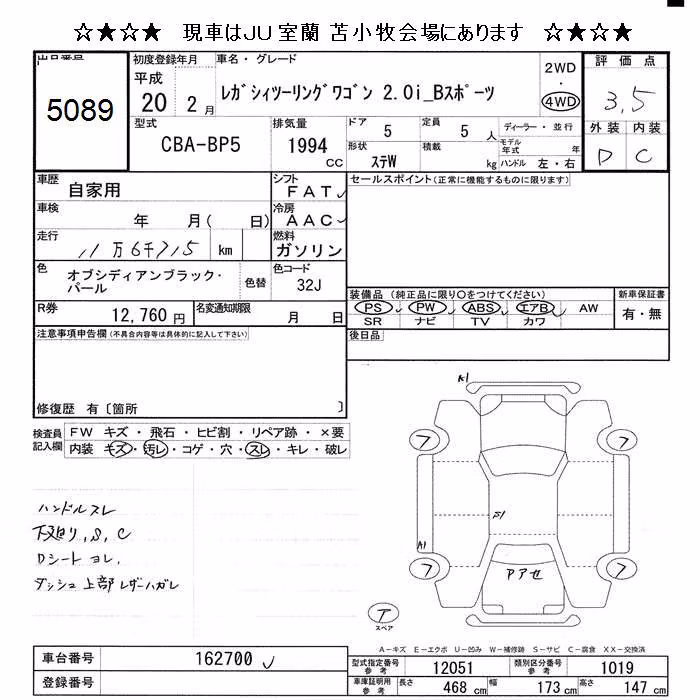 ☆★☆★ 現車はJU室蘭 苫小牧会場にあります ☆★☆★
出品番号
5089
初度登録年月
平成
20 2月
車名・グレード
レガシィツーリングワゴン 2.0i_Bスポーツ
2WD
・
4WD
評価点
3.5
外装 内装
D C
型式
CBA-BP5
排気量
1994
CC
ドア 5
定員 5人
ディーラー・並行
形状 ステW
積載 kg
モデル年式 年
ハンドル 左・右
車歴
自家用
シフト
FAT
セールスポイント(正常に機能するものに限ります)
車検
年 月( 日)
冷房
AAC
走行
11万6千715 km
燃料
ガソリン
色
オブシディアンブラック・パール
色替
色コード
32J
装備品 (純正品に限り○をつけてください)
PS PW ABS エアB AW
SR ナビ TV カワ
新車保証書
有・無
R券
12,760円
名変通知期限
月 日
注意事項申告欄(不具合内容等は具体的に記入して下さい)
後日品
修復歴 有〔箇所 〕
検査員記入欄
FW キズ・飛石・ヒビ割・リペア跡・×要
内装 キズ・汚レ・コゲ・穴・スレ・キレ・破レ
ハンドルスレ
下廻り,S,C
Dシート ヨレ,
ダッシュ上部レザーハガレ
X1
フ フ
S1
A1
フ フ
Pアセ
ア
スペア
A-キズ E-エクボ U-凹み W-補修跡 S-サビ C-腐食 XX-交換済
車台番号
162700
登録番号
型式指定番号
参考
12051
類別区分番号
参考
1019
車庫証明用
参考
長さ 468 cm
幅 173 cm
高さ 147 cm